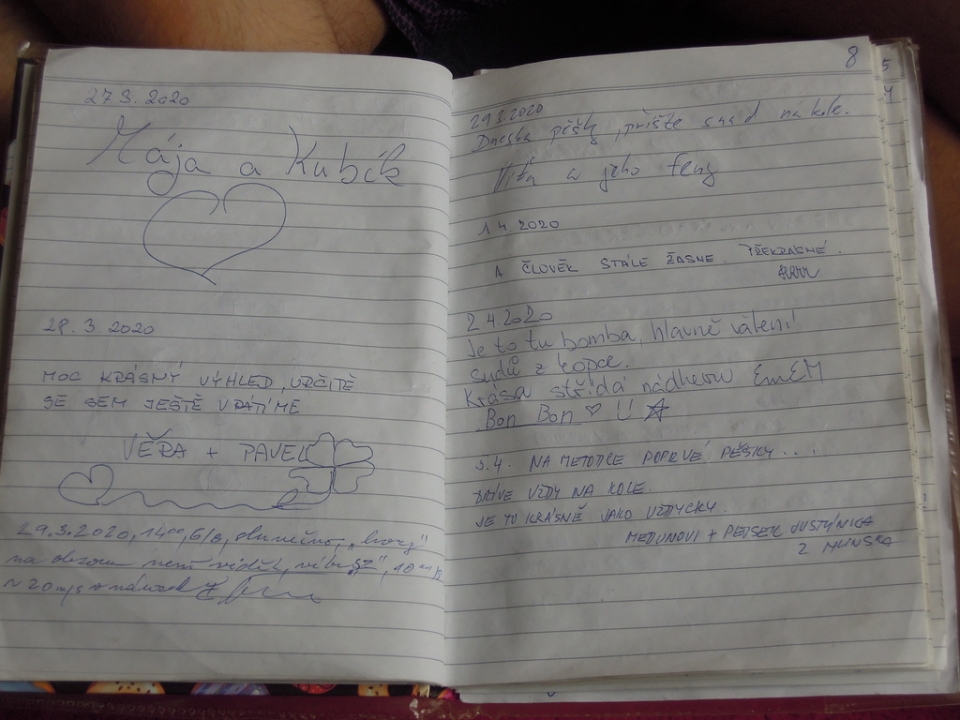 27.3.2020
Mája a Kubík
28.3.2020
MOC KRÁSNÝ VÝHLED, URČITĚ
SE SEM JEŠTĚ VRÁTÍME
VĚRA + PAVEL
29.3.2020, 14⁰⁰, 6/8, slunečno, „hory"
na obzoru není vidět,
8
29.3.2020
Dneska pěšky, příště snad na kole.
a jeho feny
1.4.2020
A ČLOVĚK STÁLE ŽASNE. PŘEKRASNÉ.
2.4.2020
Je to tu bomba, hlavně válení
sudů z kopce.
Krása střídá nádheru EmEM
Bon Bon ♡ ☆
5.4. NA METODCE POPRVÉ PĚŠKY....
DŘÍVE VŽDY NA KOLE.
JE TU KRÁSNĚ JAKO VŽDYCKY.
MEDUNOVI + PEJSEK JUSTÝNKA
Z HLINSKA